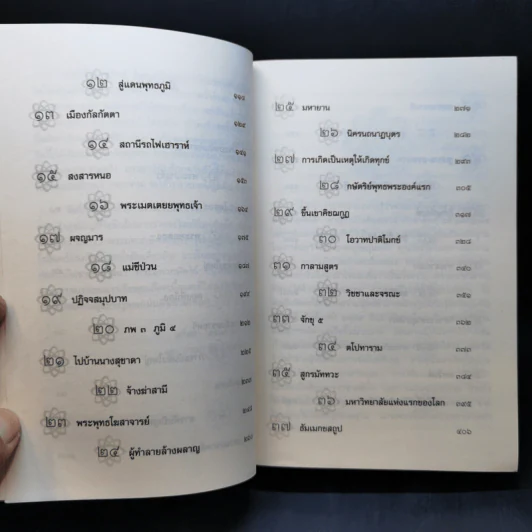 ๑๒ สู่แดนพุทธภูมิ ๑๑๔
๑๓ เมืองกัลกัตตา ๑๒๙
๑๔ สถานีรถไฟเฮาราห์
๑๕ สงสารหนอ ๑๕๓
๑๖ พระเมตเตยยพุทธเจ้า ๑๖๔
๑๗ ผจญมาร ๑๗๕
๑๘ แม่ชีป่วน
๑๙ ปฏิจจสมุปบาท
๒๐ ภพ ๓ ภูมิ ๔
๒๑ ไปบ้านนางสุชาดา
๒๒ จ้างฆ่าสามี
๒๓ พระพุทธโฆสาจารย์
๒๔ ผู้ทำลายล้างผลาญ
๒๕ มหายาน ๒๗๑
๒๖ นิครนถนาฏบุตร ๒๘๒
๒๗ การเกิดเป็นเหตุให้เกิดทุกข์ ๒๙๓
๒๘ กษัตริย์พุทธพระองค์แรก ๓๐๕
๒๙ ขึ้นเขาคิชฌกูฏ ๓๑๗
๓๐ โอวาทปาติโมกข์ ๓๒๘
๓๑ กาลามสูตร ๓๔๐
๓๒ วิชชาและจรณะ ๓๕๑
๓๓ จักขุ ๕ ๓๖๒
๓๔ ตโปทาราม ๓๗๓
๓๕ สูกรมัททวะ ๓๘๔
๓๖ มหาวิทยาลัยแห่งแรกของโลก ๓๙๕
๓๗ ธัมเมกขสถูป ๔๐๖